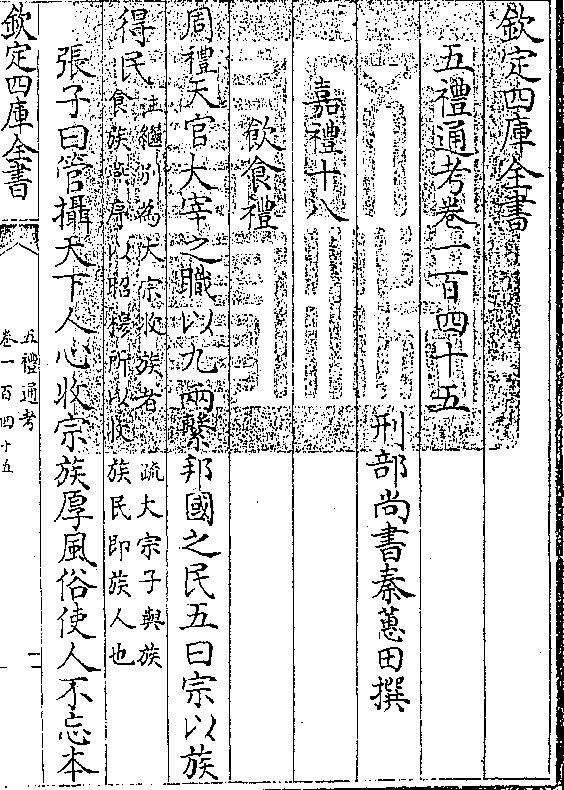 欽定四庫全書
五禮通考卷一百四十五
刑部尚書秦蕙田撰
嘉禮十八
飲食禮
周禮天官大宰之職以九兩繫邦國之民五曰宗以族
得民
注繼别為大宗收族者 疏大宗子與族
食族燕序以昭穆所以收族民即族人也
張子曰管攝天下人心收宗族厚風俗使人不忘本
欽定四庫全書
五禮通考
卷一百四十五
一